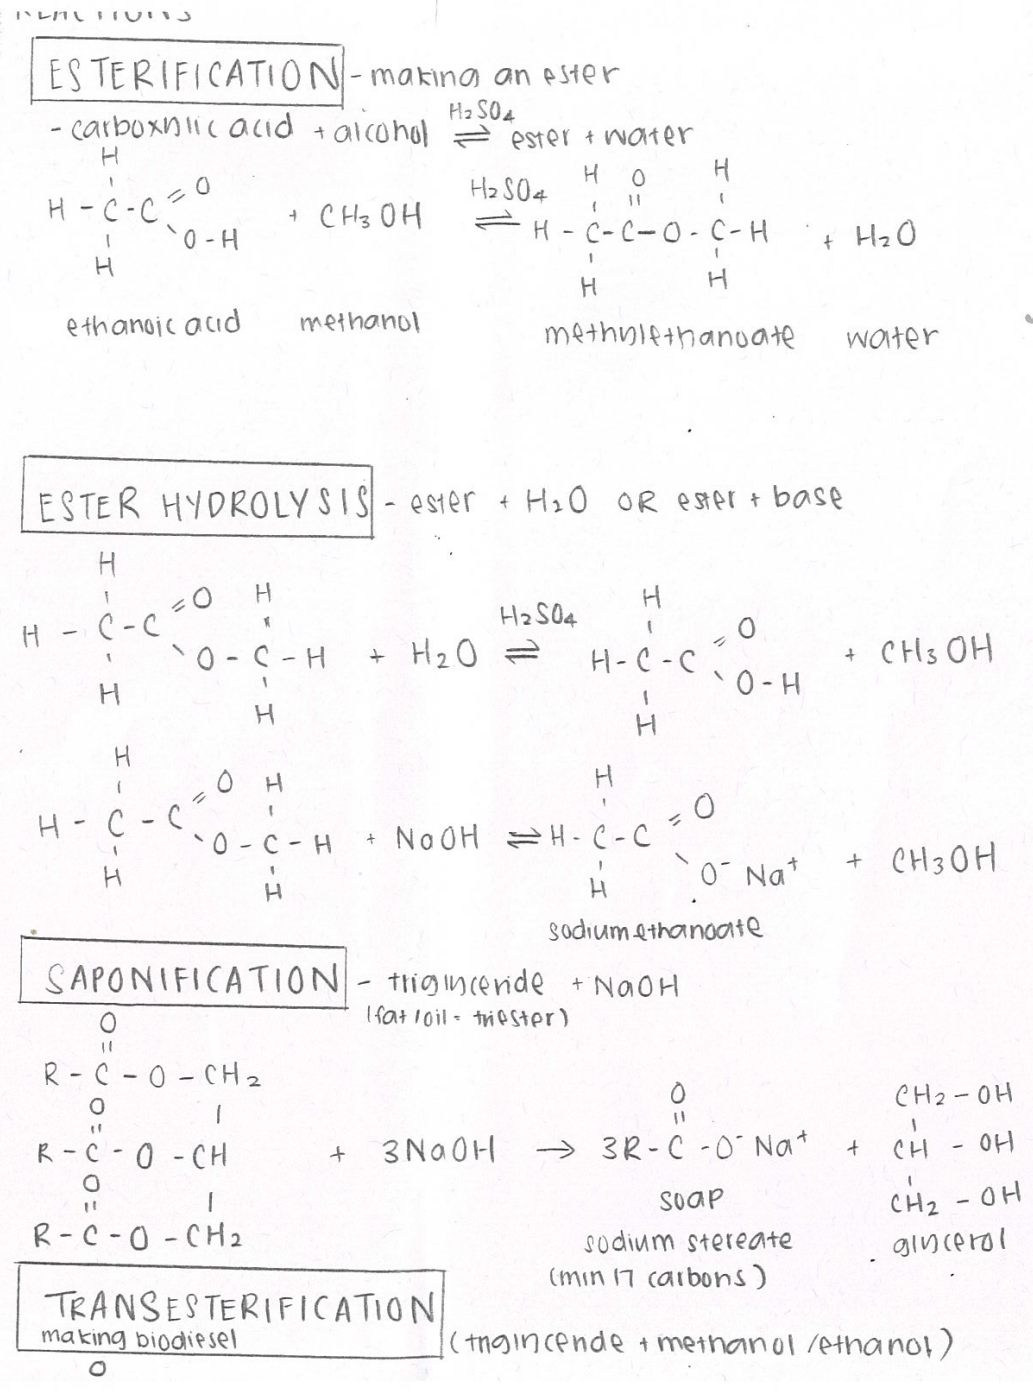 REACTIONS
ESTERIFICATION - making an ester
- carboxylic acid + alcohol ⇌ ester + water
H2SO4
H
H - C - C = O
O - H
H
+ CH3OH
H2SO4
⇌
H O H
H - C - C - O - C - H + H2O
H H
ethanoic acid methanol methylethanoate water
ESTER HYDROLYSIS - ester + H2O OR ester + base
H
H - C - C = O H
O - C - H + H2O ⇌
H H
H2SO4
H
H - C - C = O
O - H
H
+ CH3OH
H
H - C - C = O H
O - C - H + NaOH ⇌
H H
H
H - C - C = O
O⁻ Na⁺
H
+ CH3OH
sodium ethanoate
SAPONIFICATION - triglyceride + NaOH
(fat/oil = triester)
O
R - C - O - CH2
O
R - C - O - CH
O
R - C - O - CH2
+ 3NaOH →
O
3R - C - O⁻ Na⁺ +
CH2 - OH
CH - OH
CH2 - OH
soap
sodium stereate glycerol
(min 17 carbons)
TRANSESTERIFICATION
making biodiesel (triglyceride + methanol/ethanol)
O